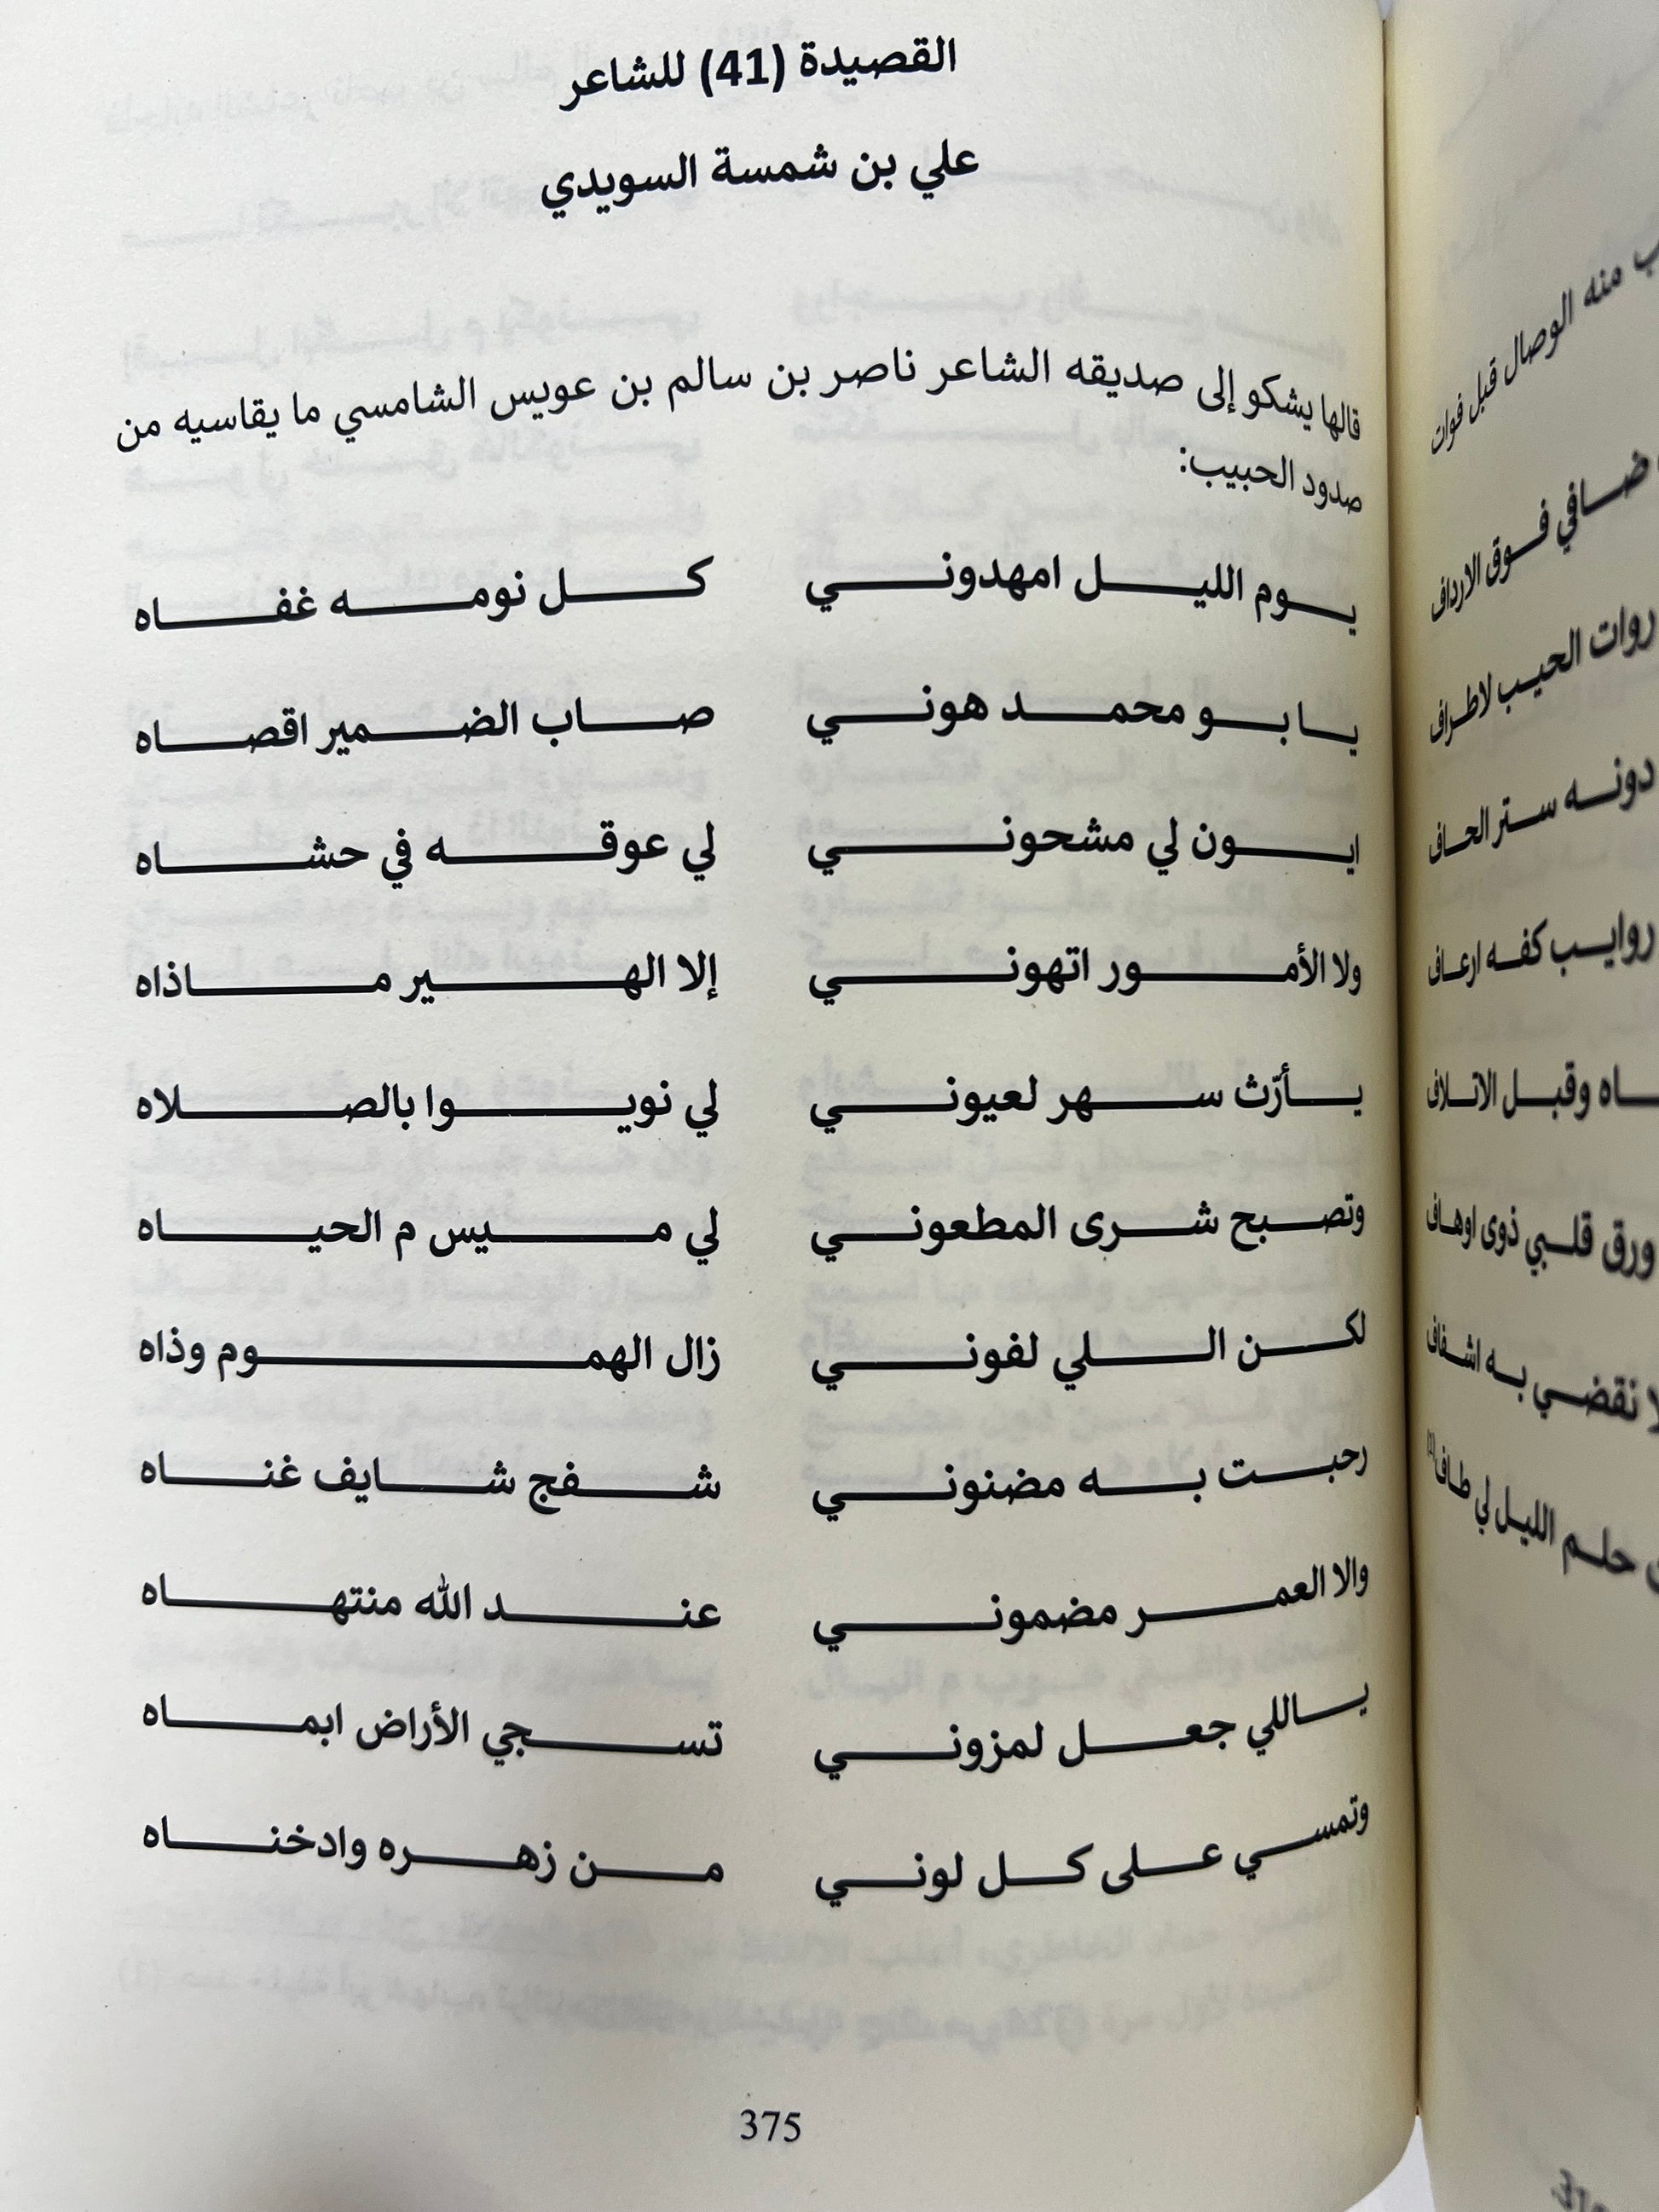 القصيدة (41) للشاعر
علي بن شمسة السويدي
قالها يشكو إلى صديقه الشاعر ناصر بن سالم بن عويس الشامسي ما يقاسيه من
صدود الحبيب:
يوم الليل امهدوني كل نومه غفاه
يا بو محمد هوني صاب الضمير اقصاه
ايون لي مشحوني لي عوقه في حشاه
ولا الأمور اتهوني إلا الهير ماذاه
يأرّث سهر لعيوني لي نويوا بالصلاه
وتصبح شرى المطعوني لي ميس م الحياه
لكن اللي لفوني زال الهموم وذاه
رحبت به مضنوني شفج شايف غناه
والا العمر مضموني عند الله منتهاه
ياللي جعل لمزوني تسجي الأراض ابماه
وتمسي على كل لوني من زهره وادخناه
375
منه الوصال قبل فوات
ضافي فوق الارداف
روات الحيب لاطراف
دونه ستر الحاف
روايب كفه ارعاف
اه وقبل الاتلاف
ورق قلبي ذوى اوهاف
نقضي به اشفاف
حلم الليل لي طاف